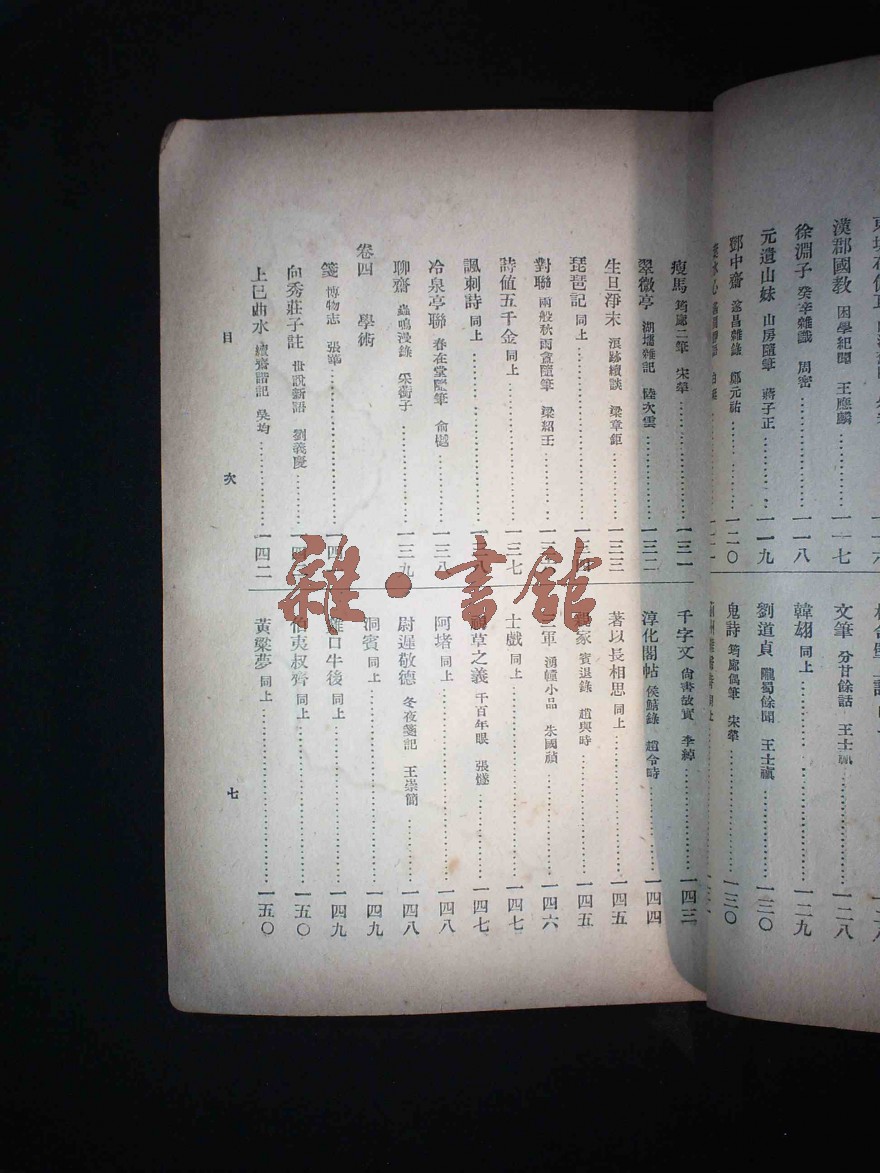 漢郡國教 困學紀聞 王應麟…………一一七
徐淵子 癸辛雜識 周密…………一一八
元遺山妹 山房隨筆 蔣子正…………一一九
鄧中齋 遂昌雜錄 鄭元祐…………一二〇
文筆 分甘餘話 王士禛…………一二八
韓翃 同上…………一二九
劉道貞 隴蜀餘聞 王士禛…………一三〇
鬼詩 筠廊偶筆 宋犖…………一三〇
瘦馬 筠廊二筆 宋犖…………一三一
翠微亭 湖壖雜記 陸次雲…………一三二
生旦淨末 浪跡續談 梁章鉅…………一三三
琵琶記 同上…………
對聯 兩般秋雨盦隨筆 梁紹壬…………
詩值五千金 同上…………一三七
諷刺詩 同上…………一三八
冷泉亭聯 春在堂隨筆 俞樾…………一三八
聊齋 蟲鳴漫錄 采蘅子…………一三九
卷四 學術
箋 博物志 張華…………一四
向秀莊子註 世說新語 劉義慶…………一四
上巳曲水 續齋諧記 吳均…………一四二
千字文 尙書故實 李綽…………一四三
淳化閣帖 侯鯖錄 趙令畤…………一四四
著以長相思 同上…………一四五
家 賓退錄 趙與時…………一四五
軍 湧幢小品 朱國禎…………一四六
士戲 同上…………一四七
草之義 千百年眼 張燧…………一四七
阿堵 同上…………一四八
尉遲敬德 冬夜箋記 王崇簡…………一四八
洞賓 同上…………一四九
雞口牛後 同上…………一四九
伯夷叔齊 同上…………一五〇
黃粱夢 同上…………一五〇
目 次 七
雜·書館